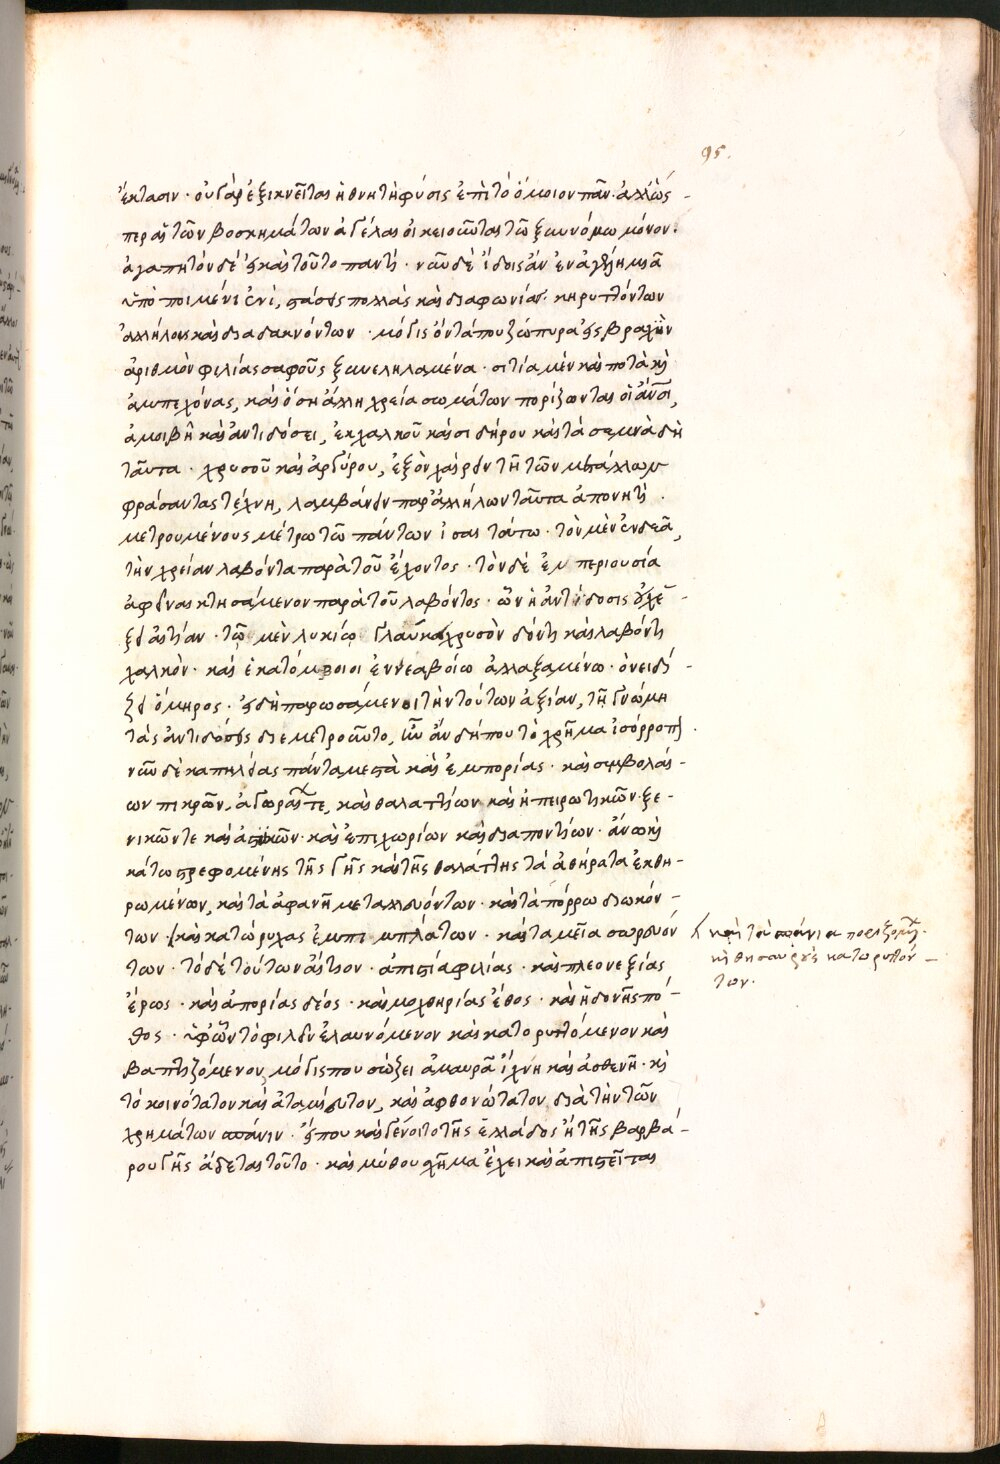 95.
ἔκτασιν· οὐ γὰρ ἐξικνεῖται ἡ θνητὴ φύσις ἐπὶ τὸ ὅμοιον πᾶν. ἄλλως
περ αἱ τῶν βοσκημάτων ἀγέλαι οἰκειοῦται τῶ ξυννόμω μόνον.
ἀγαπητὸν δὲ εἰ καὶ τοῦτο παντί· νῦν δὲ ἴδοις ἂν ἐν ἀγέλη μιᾶ
ὑπὸ ποιμένι ἑνὶ, στάσεις πολλὰς καὶ διαφωνίας· κηρυττόντων
ἀλλήλους καὶ διαδακνόντων· μόγις ὄντα που ζώπυρα εἰς βραχὺν
ἀριθμὸν φιλίας σαφοῦς ξυνεληλαμένα· σιτία μὲν καὶ ποτὰ καὶ
ἀμπεχόνας, καὶ ὅση ἄλλη χρεία σωμάτων πορίζονται οἱ ἄνοι,
ἀμοιβῆ καὶ ἀντιδόσει, ἐκ χαλκοῦ καὶ σιδήρου καὶ τὰ σεμνὰ δὴ
ταῦτα· χρυσοῦ καὶ ἀργύρου, ἐξὸν χαίρειν τῆ τῶν μετάλλων
φράσαντας τέχνη, λαμβάνειν παρ' ἀλλήλων ταῦτα ἀπονητί.
μετρουμένους μέτρω τῶ πάντων ἰσαιτάτω· τὸν μὲν ἐνδεᾶ,
τὴν χρείαν λαβόντα παρὰ τοῦ ἔχοντος· τὸν δὲ ἐν περιουσία
ἀφεῖναι κτησάμενον παρὰ τοῦ λαβόντος· ὧν ἡ ἀντίδοσις οὐχ ἕ-
ξει αἰτίαν· τῶ μὲν λυκίω Γλαύκω χρυσὸν δόντι καὶ λαβόντι
χαλκὸν· καὶ ἑκατόμβοιοι ἐννεαβοίω ἀλλαξαμένω· ὀνειδί-
ζει ὅμηρος· εἰ δὴ παρωσάμενοι τὴν τούτων ἀξίαν, τῆ γνώμη
τὰς ἀντιδόσεις διεμετροῦντο, ἦν ἂν δήπου τὸ χρῆμα ἰσόρροπον.
νῦν δὲ καπηλείας πάντα μεστὰ καὶ ἐμπορίας· καὶ συμβολαί-
ων πικρῶν· ἀγορᾶς τε, καὶ θαλαττίων καὶ ἠπειρωτικῶν ξε-
νικῶν τε καὶ ἀστικῶν· καὶ ἐπιχωρίων καὶ διαποντίων· ἄνω καὶ
κάτω στρεφομένης τῆς γῆς καὶ τῆς θαλάττης τὰ ἀθήρατα ἐκθη-
ρωμένων, καὶ τὰ ἀφανῆ μεταλλευόντων· καὶ τὰ πόρρω διωκόν-
των· καὶ κατώρυχας ἐμπιμπλάντων· καὶ ταμεῖα σωρευόν
των· τὸ δὲ τούτων αἴτιον· ἀπιστία φιλίας· καὶ πλεονεξίας
ἔρως· καὶ ἀπορίας δέος· καὶ μοχθηρίας ἔθος· καὶ ἡδονῆς πό-
θος· ὑφ' ὧν τὸ φιλεῖν ἐλαυνόμενον καὶ κατορυττόμενον καὶ
βαπτιζόμενον, μόγις που σώζει ἀμαυρὰ ἴχνη καὶ ἀσθενῆ· καὶ
τὸ κοινότατον καὶ ἀταμίευτον, καὶ ἀφθονώτατον, διὰ τὴν τῶν
χρημάτων σπάνιν· εἴ που καὶ γένοιτο τῆς ἑλλάδος ἢ τῆς βαρβά-
ρου γῆς ἄδεται τοῦτο· καὶ μύθου σχῆμα ἔχει καὶ ἀπιστεῖται
καὶ τὰ σπάνια ποριζομένων·
καὶ θησαυροὺς κατορυττόν-
των.